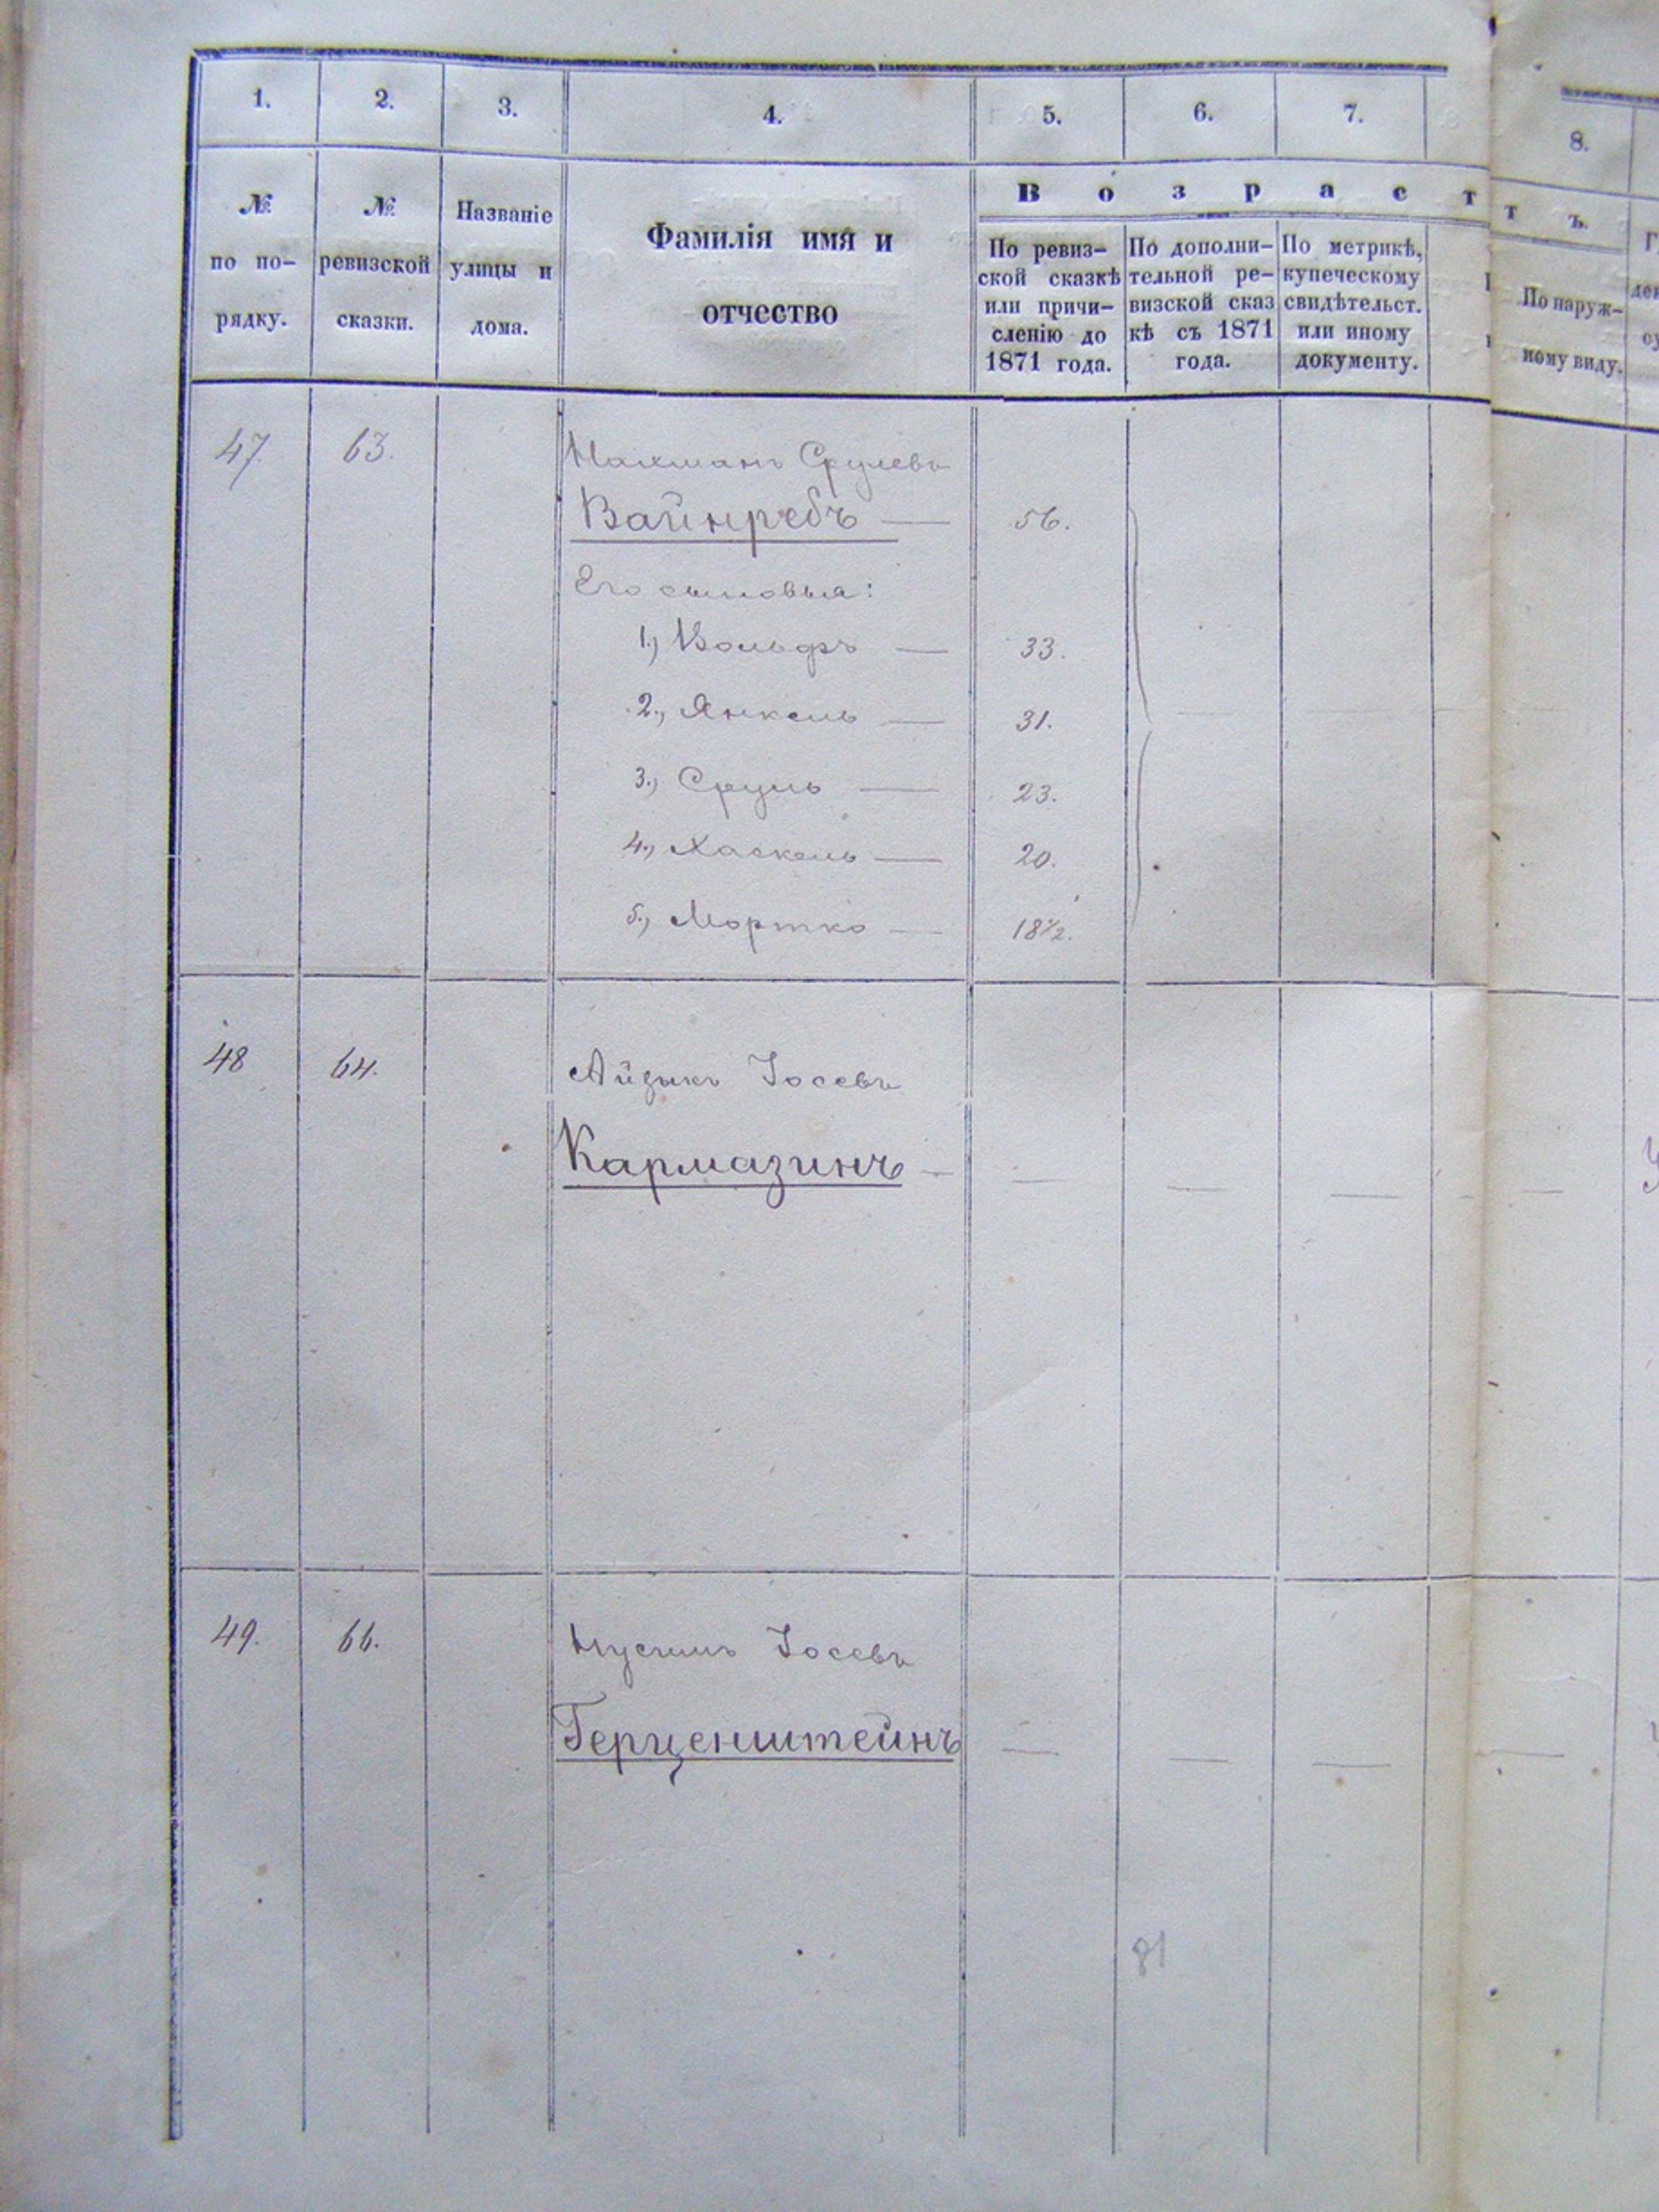 1. 2. 3. 4. 5. 6. 7. 8.
№ по по-рядку.
№ ревизской сказки.
Названіе улицы и дома.
Фамилія имя и
отчество
В о з р а с т ъ.
По ревиз-
ской сказкѣ
или причи-
сленію до
1871 года.
По дополни-
тельной ре-
визской сказ
кѣ съ 1871
года.
По метрикѣ,
купеческому
свидѣтельст.
или иному
документу.
По наруж-
ному виду.
47. 63. Нахманъ Срулевъ
Вайнребъ — 56.
Его сыновья:
1.) Вольфъ — 33.
2., Янкель — 31.
3.) Сруль — 23.
4., Хаскель — 20.
5., Мортко — 18½.
48 64. Айзикъ Іосевъ
Кармазинъ — — — — —
49. 66. Іосевъ
Герценштейнъ — — — —
81